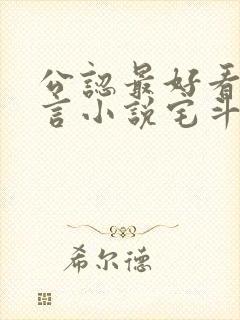 公認最好看
言小說宅斗
希尔德